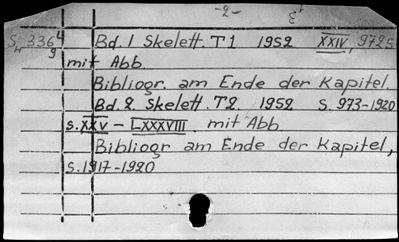 -2-
S 336 4 Bd. 1 Skelett. T1 1952 XXIV, 972 S.
9
mit Abb.
Bibliogr. am Ende der Kapitel.
Bd. 2. Skelett. T2. 1952 S. 973-1920
S. XXV - LXXXVIII. mit Abb
Bibliogr am Ende der Kapitel,
S. 1917-1920